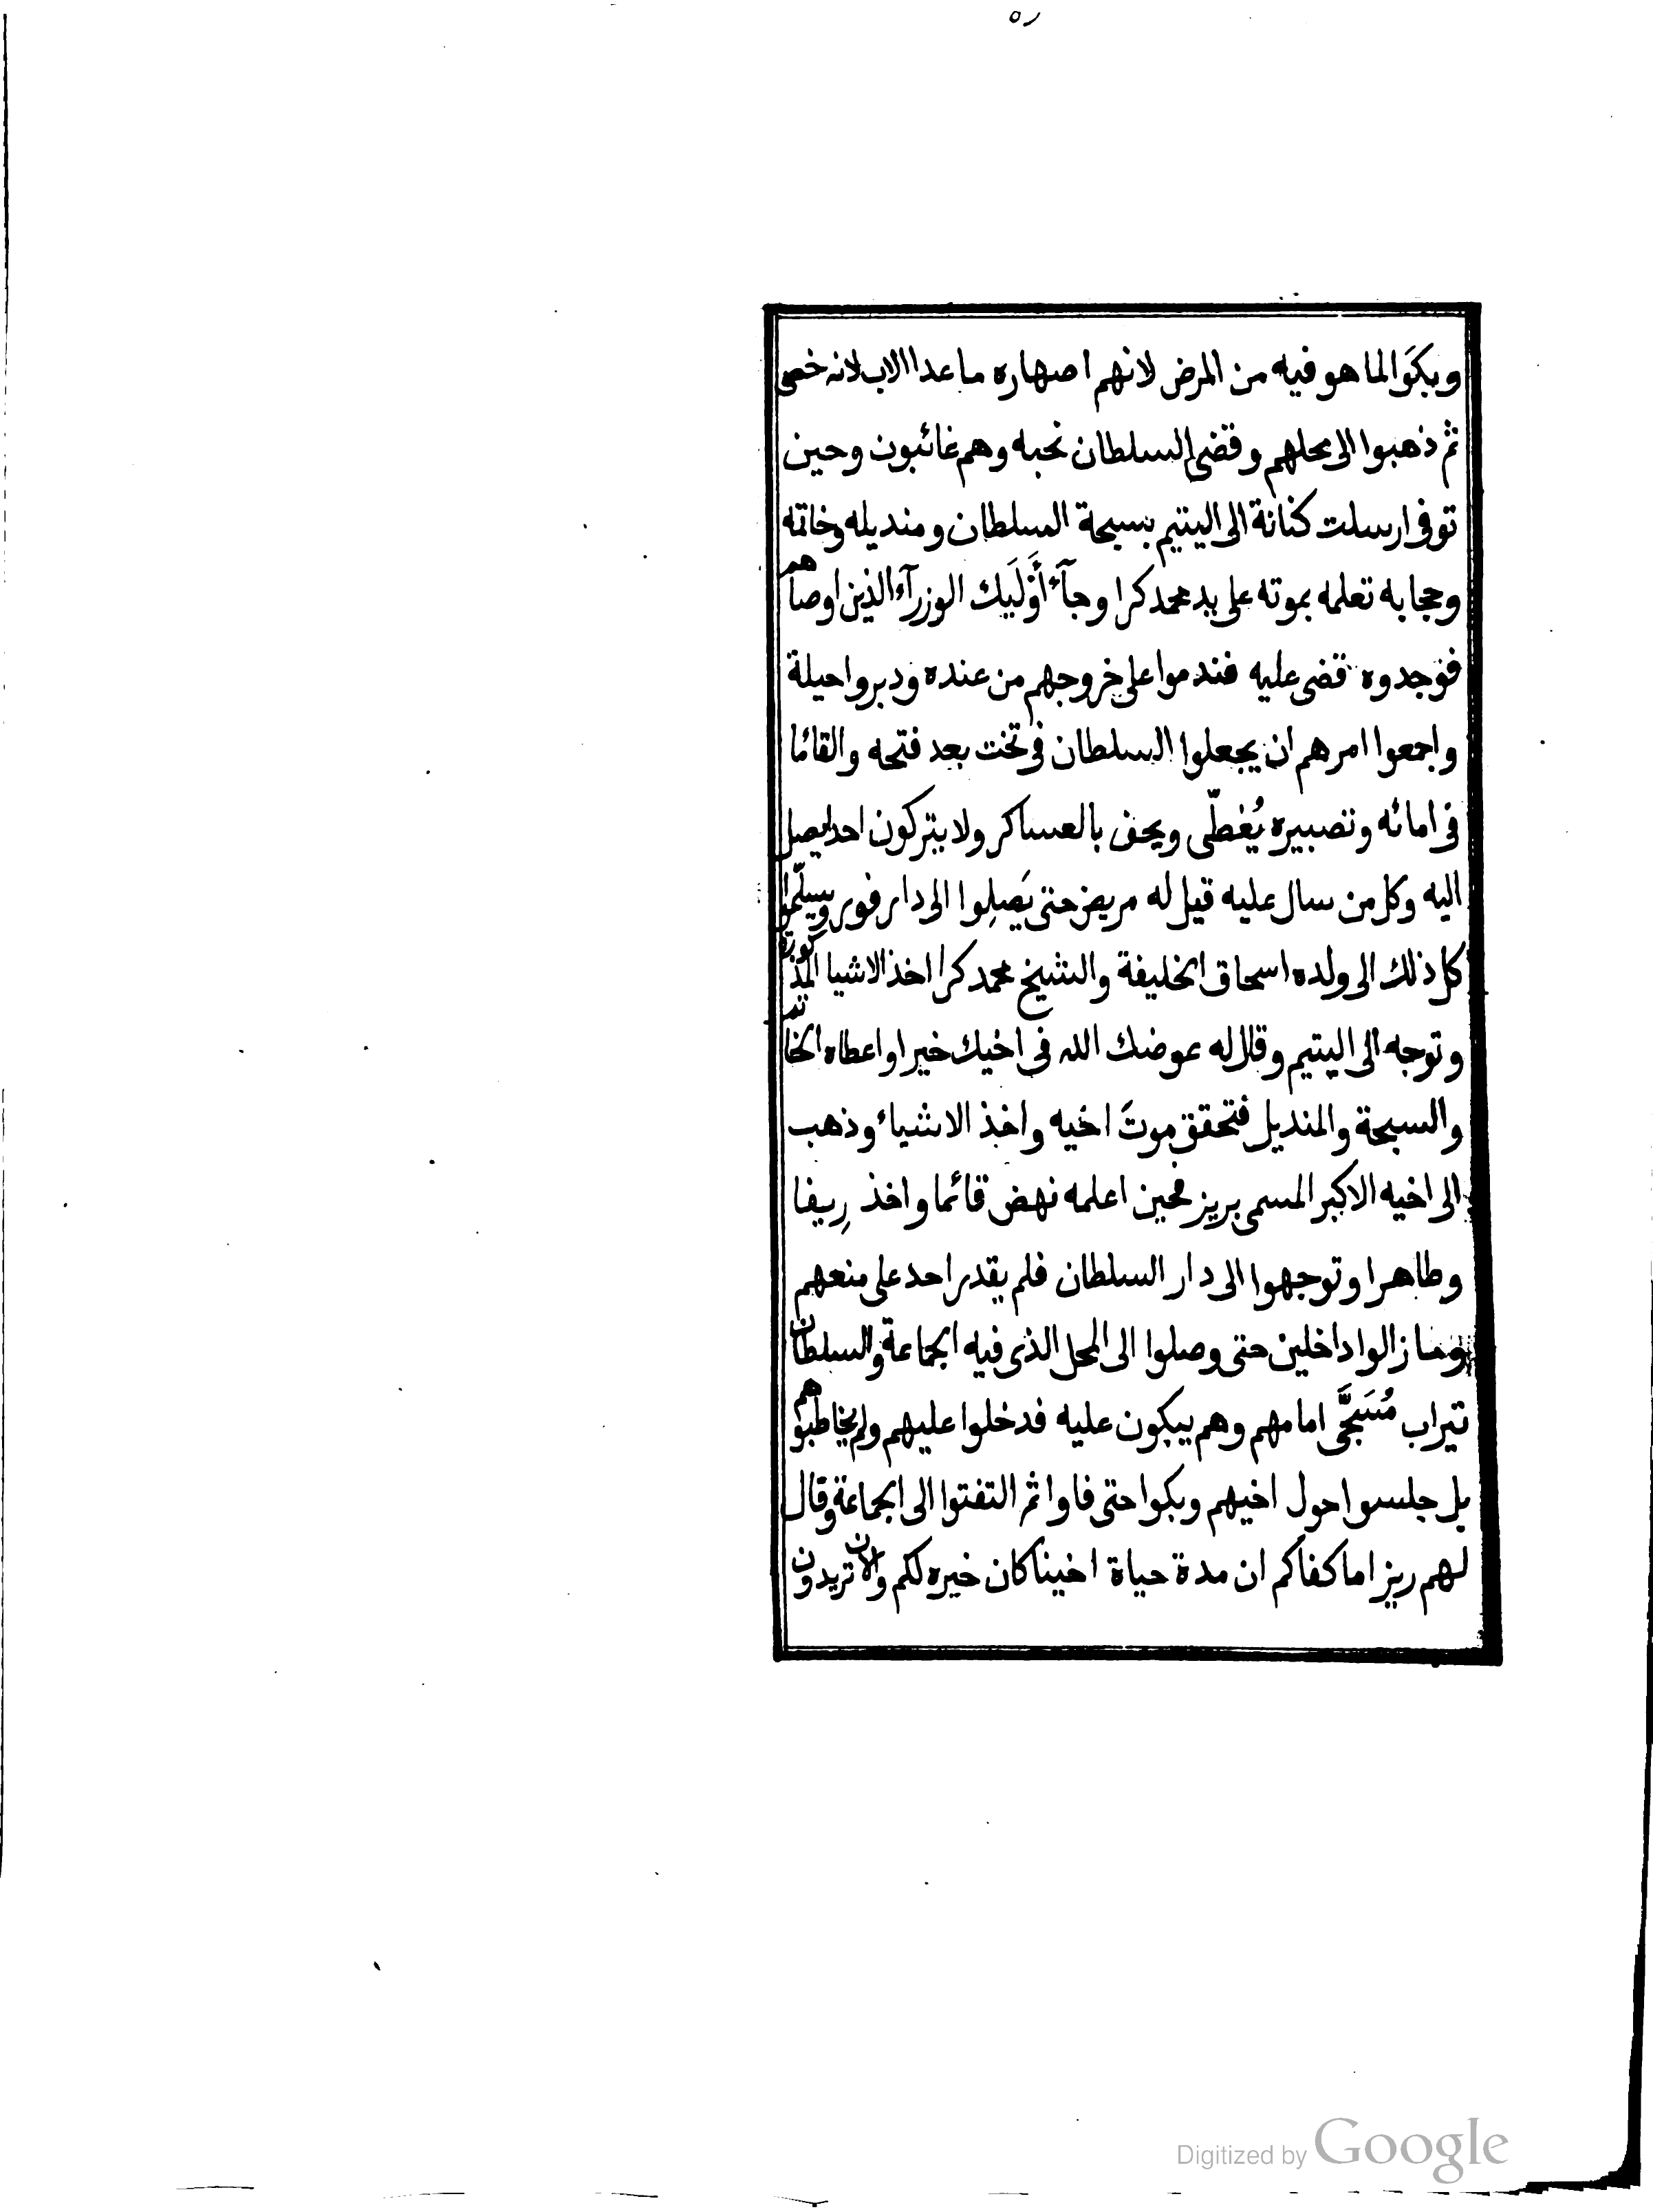 ٥٨
وبكَوا لما هو فيه من المرض لانهم اصهاره ما عدا الاب لانه خصى
ثم ذهبوا الى محلهم وقضى السلطان نحبه وهم غائبون وحين
توفى ارسلت كنانة الى اليتيم بسبحة السلطان ومنديله وخاتمه
وحجابه تعلمه بموته على يد محمد كرا وجآء أُوْلَيِك الوزرآء الذين اوصاهم
فوجدوه قضى عليه فندموا على خروجهم من عنده ودبروا حيلة
واجمعوا امرهم ان يجعلوا السلطان فى تخت بعد فتحه والقائما
فى امائه وتصبيره يُغطّى ويحف بالعساكر ولا يتركون احدا يصل
اليه وكل من سال عليه قيل له مريض حتى يَصِلوا الى دار فور ويسلّموا
كل ذلك الى ولده اسحاق الخليفة والشيخ محمد كرا اخذ الاشيا المذكورة
وتوجه الى اليتيم وقال له عوضك الله فى اخيك خيرا واعطاه الخاتم
والسبحة والمنديل فتحقق موتَ اخيه واخذ الاشياء وذهب
الى اخيه الاكبر المسمى بريز فحين اعلمه نهض قائما واخذ رِيفا
وطاهرا وتوجهوا الى دار السلطان فلم يقدر احد على منعهم
وما زالوا داخلين حتى وصلوا الى المحل الذى فيه الجماعة والسلطان
تيراب مُسَجَّى امامهم وهم يبكون عليه فدخلوا عليهم ولم يخاطبوهم
بل جلسوا حول اخيهم وبكوا حتى فاوا ثم التفتوا الى الجماعة وقال
لهم ريز اما كفاكم ان مدة حياة اخينا كان خيره لكم والان تريدون
Digitized by Google